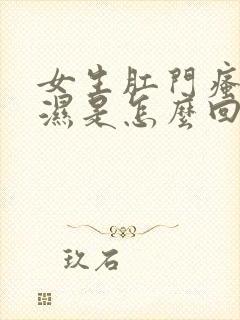 女生肛門瘙
濕是怎麼回
玖石